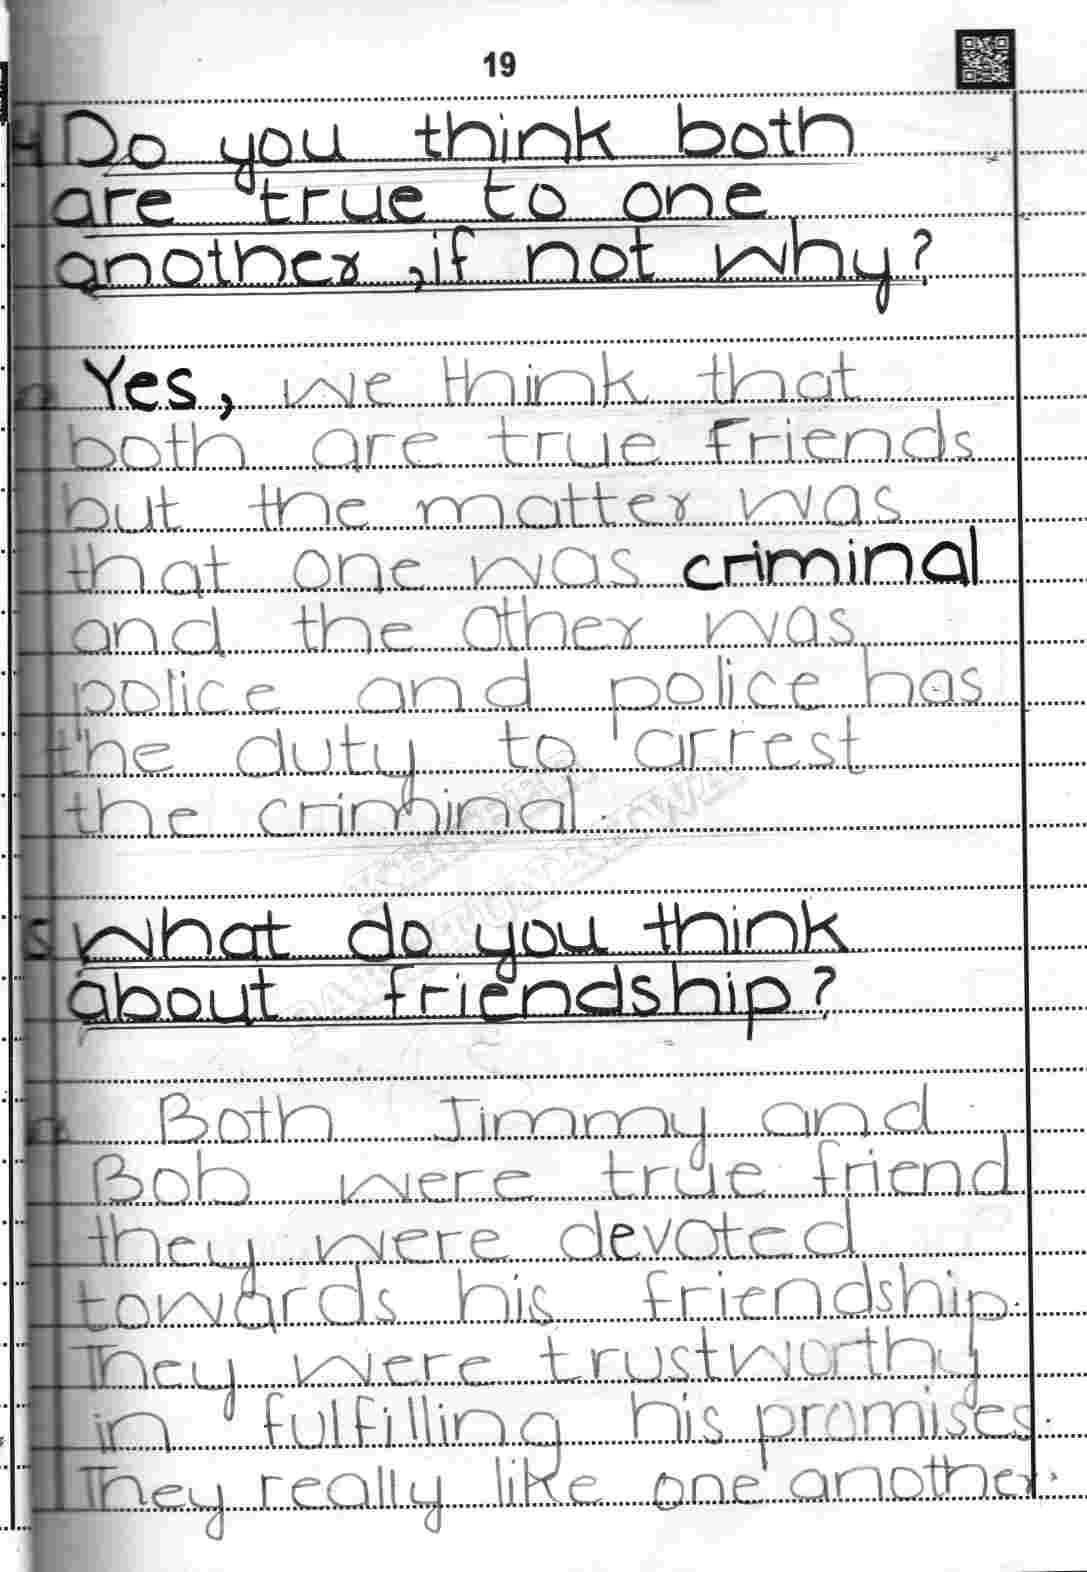 19
4 Do you think both
are true to one
another, if not why?
Yes, we think that
both are true friends
but the matter was
that one was criminal
and the other was
police and police has
the duty to arrest
the criminal.
5 What do you think
about friendship?
Both Jimmy and
Bob were true friend
they were devoted
towards his friendship.
They were trustworthy
in fulfilling his promises.
They really like one another.